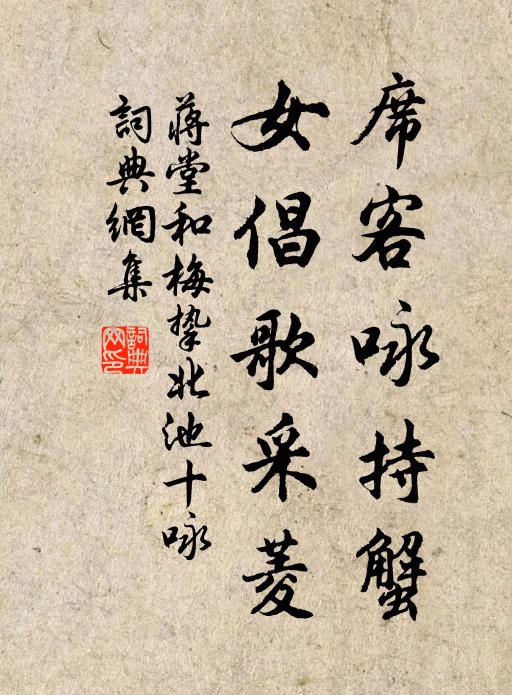 席客咏持蟹
女倡歌采菱
蒋堂和梅挚北池十咏
詞典網集
詞典网印